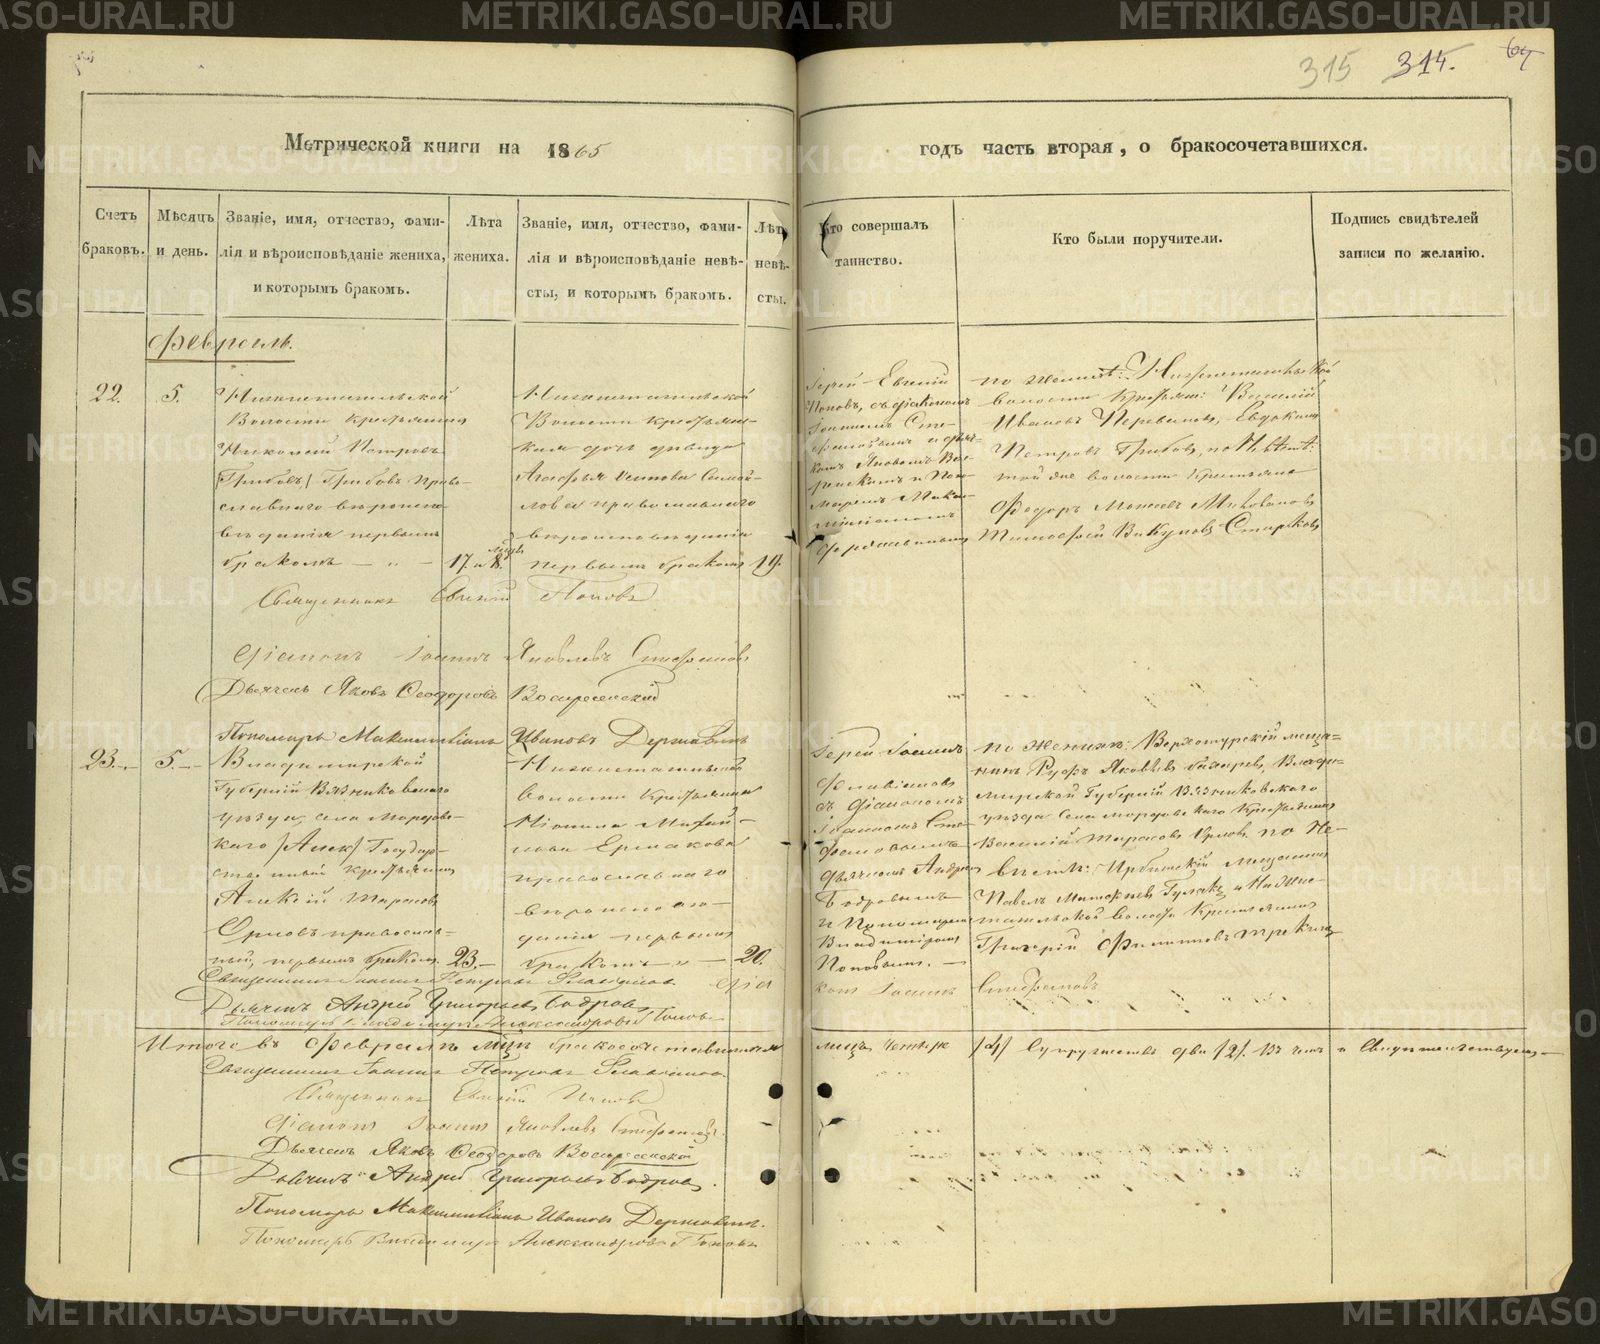 315 314. 64
Метрической книги на 1865
годъ часть вторая, о бракосочетавшихся.
Счетъ браковъ.
Мѣсяцъ и день.
Званіе, имя, отчество, фами-
лія и вѣроисповѣданіе жениха,
и которымъ бракомъ.
Лѣта
жениха.
Званіе, имя, отчество, фами-
лія и вѣроисповѣданіе невѣ-
сты, и которымъ бракомъ.
Лѣта
невѣ-
сты.
Кто совершалъ
таинство.
Кто были поручители.
Подпись свидѣтелей
записи по желанію.
Февраль.
22. 5.
Нижнетагильской
Волости крестьянинъ
Николай Петровъ
Грибовъ Право-
славнаго вѣроиспо-
вѣданія первымъ
бракомъ — „ —
17. и 8. мѣс.
Нижнетагильской
Волости крестьян-
ская дочь девица
Агафья Осипова Самой-
лова православнаго
вѣроисповѣданія
первымъ бракомъ
19.
Іерей Евгеній
Поповъ, съ діакономъ
Іоанномъ Сте-
фановымъ и дьяч-
комъ Яковомъ Вос-
кресенскимъ и Поно-
маремъ Макси-
миліаномъ
Державинымъ
по жених: Нижнетагильской
волости крестьян: Василій
Ивановъ Перевалов, Евдокимъ
Петровъ Грибовъ, по Невѣст:
той же волости крестьяне
Федоръ
Тимофей Викуловъ
Священникъ Евгеній Поповъ
Діаконъ Іоаннъ Яковлевъ Стефановъ
Дьячекъ Яковъ Ѳеодоровъ Воскресенскій
Пономарь Максимиліанъ Ивановъ Державинъ
23. 5.
Владимирской
Губерніи Вязниковскаго
уѣзда, села Мордовс-
каго /Алек/ Государ-
ственный крестьянинъ
Алексѣй Тарасовъ
Орловъ православ-
ный, первымъ бракомъ
23.
Нижнетагильской
волости крестьянина
Михай-
лова Ермакова
православнаго
вѣроисповѣ-
данія первымъ
бракомъ — „ —
20.
Іерей Іоаннъ
Флавіановъ
съ Діакономъ
Іоанномъ Сте-
фановымъ
дьячкомъ Андреемъ
Бодровымъ
и Пономаремъ
Владиміромъ
Поповымъ. —
по Женихѣ: Верхотурскій меща-
нинъ Руфъ Яковлевъ Влади-
мирской Губерніи Вязниковскаго
уѣзда Села Мордовскаго Крестьянинъ
Василій Тарасовъ Орловъ по Не-
вѣстѣ: Ирбитскій Мещанинъ
Павелъ и Нижне-
тагильской Волости Крестьянинъ
Григорій Филипповъ
Священникъ Іоаннъ Петровъ Флавіановъ. Діа
конъ Іоаннъ Стефановъ
Дьячекъ Андрей Григорьевъ Бодровъ
Пономарь Владимиръ Александровъ Поповъ
Итого въ Февралѣ мѣсяцѣ бракосочетавшихся
лицъ четыре /4/ Супружествъ два /2/. Въ чемъ и Свидѣтельствуемъ
Священникъ Іоаннъ Петровъ Флавіановъ.
Священникъ Евгеній Поповъ
Діаконъ Іоаннъ Яковлевъ Стефановъ.
Дьячекъ Яковъ Ѳеодоровъ Воскресенскій
Дьячекъ Андрей Григорьевъ Бодровъ.
Пономарь Максимиліанъ Ивановъ Державинъ.
Пономарь Владимиръ Александровъ Поповъ
METRIKI.GASO-URAL.RU